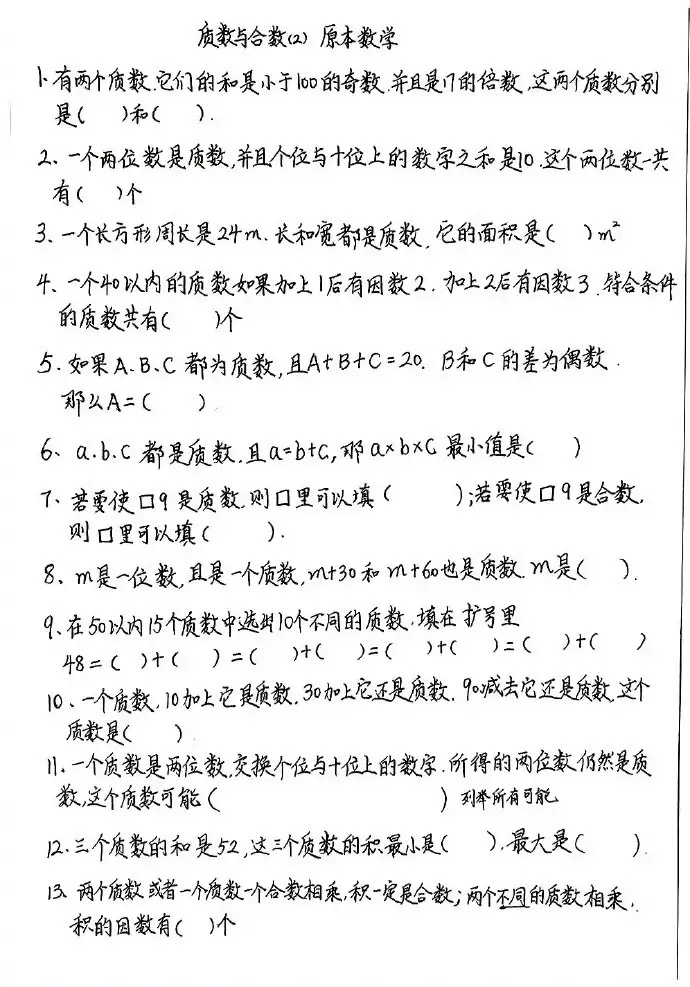 质数与合数(2) 原本数学
1.有两个质数.它们的和是小于100的奇数.并且是17的倍数,这两个质数分别
是( )和( ).
2、一个两位数是质数,并且个位与十位上的数字之和是10.这个两位数一共
有( )个
3、一个长方形周长是24m.长和宽都是质数,它的面积是( )m²
4、一个40以内的质数如果加上1后有因数2.加上2后有因数3.符合条件
的质数共有( )个
5.如果A、B、C都为质数,且A+B+C=20.B和C的差为偶数.
那么A=( )
6、a.b.c都是质数.且a=b+c,那a×b×c最小值是( )
7、若要使□9是质数.则□里可以填( );若要使□9是合数,
则□里可以填( ).
8、m是一位数,且是一个质数,m+30和m+60也是质数.m是( ).
9、在50以内15个质数中选出10个不同的质数.填在扩号里
48=( )+( )=( )+( )=( )+( )=( )+( )
10、一个质数,10加上它是质数.30加上它还是质数.90减去它还是质数.这个
质数是( )
11.一个质数是两位数,交换个位与十位上的数字.所得的两位数仍然是质
数,这个质数可能( )列举所有可能
12.三个质数的和是52,这三个质数的积最小是( ),最大是( ).
13、两个质数或者一个质数一个合数相乘,积一定是合数;两个不同的质数相乘.
积的因数有( )个